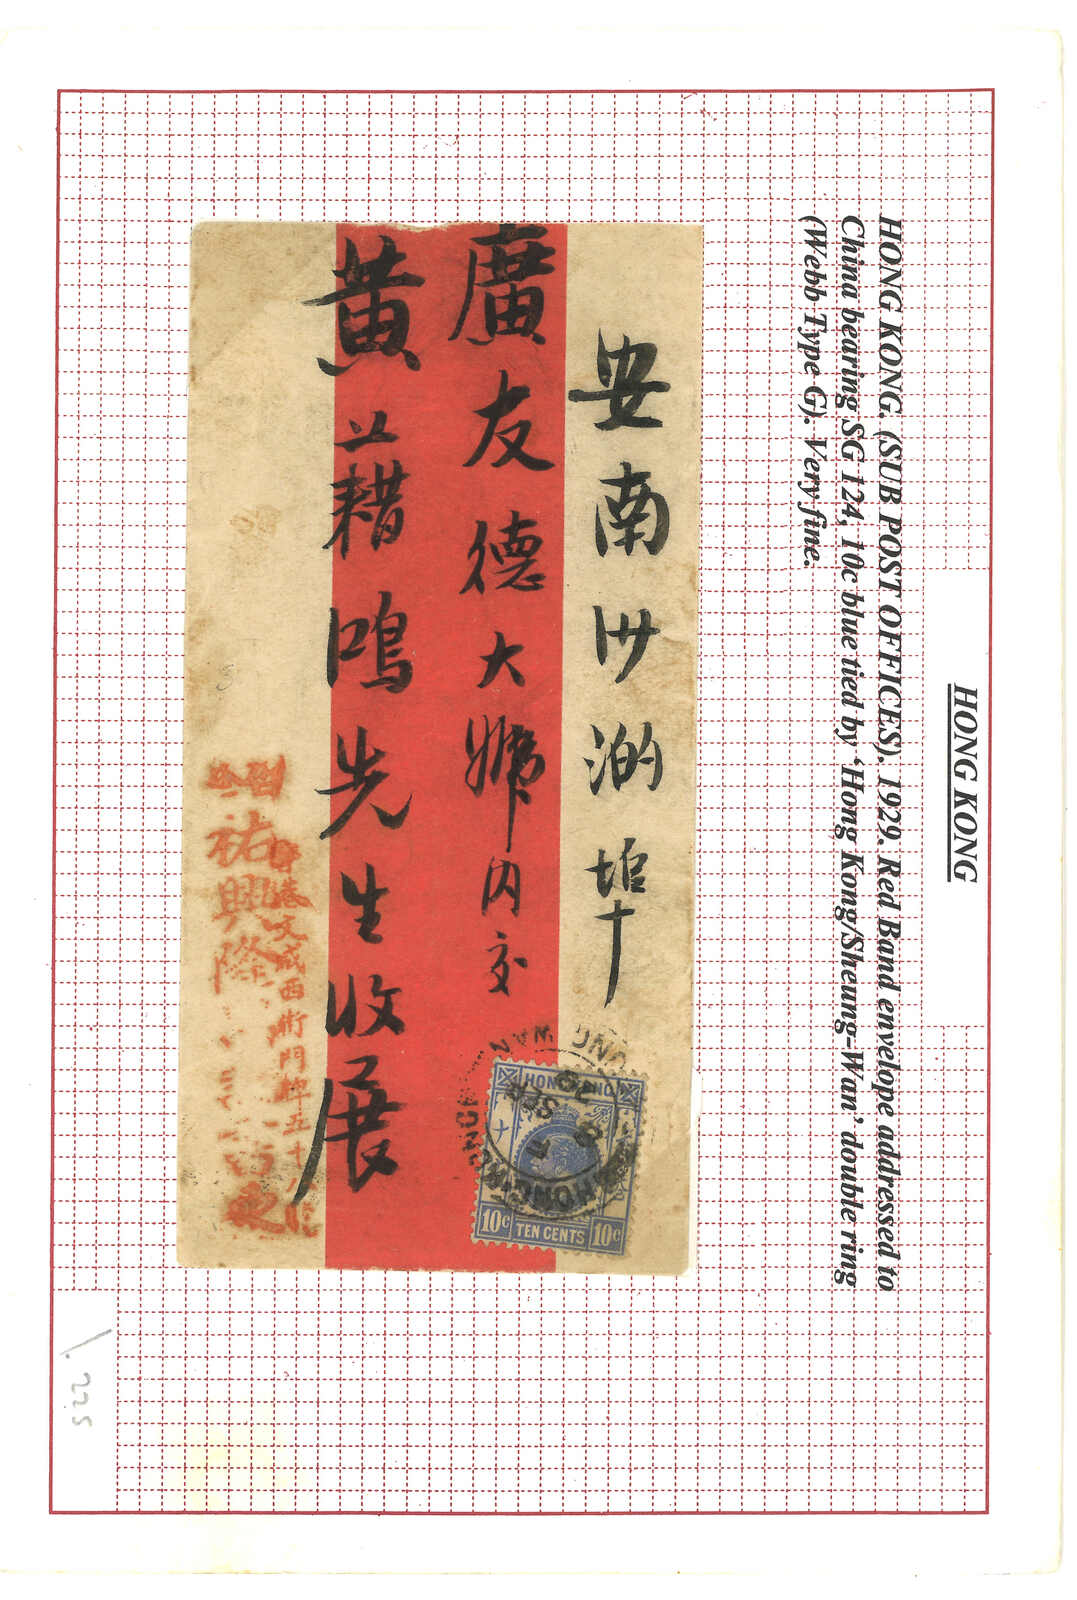 HONG KONG
HONG KONG. (SUB POST OFFICES). 1929. Red Band envelope addressed to
China bearing SG 124, 10c blue tied by ‘Hong Kong/Sheung-Wan’ double ring
(Webb Type G). Very fine.
安南
埠
廣友德大號內交
黃藉鴻先生收展
HONG KONG
10c TEN CENTS 10c
HONG KONG
祐興隆
香港文咸西街門牌五十八
225